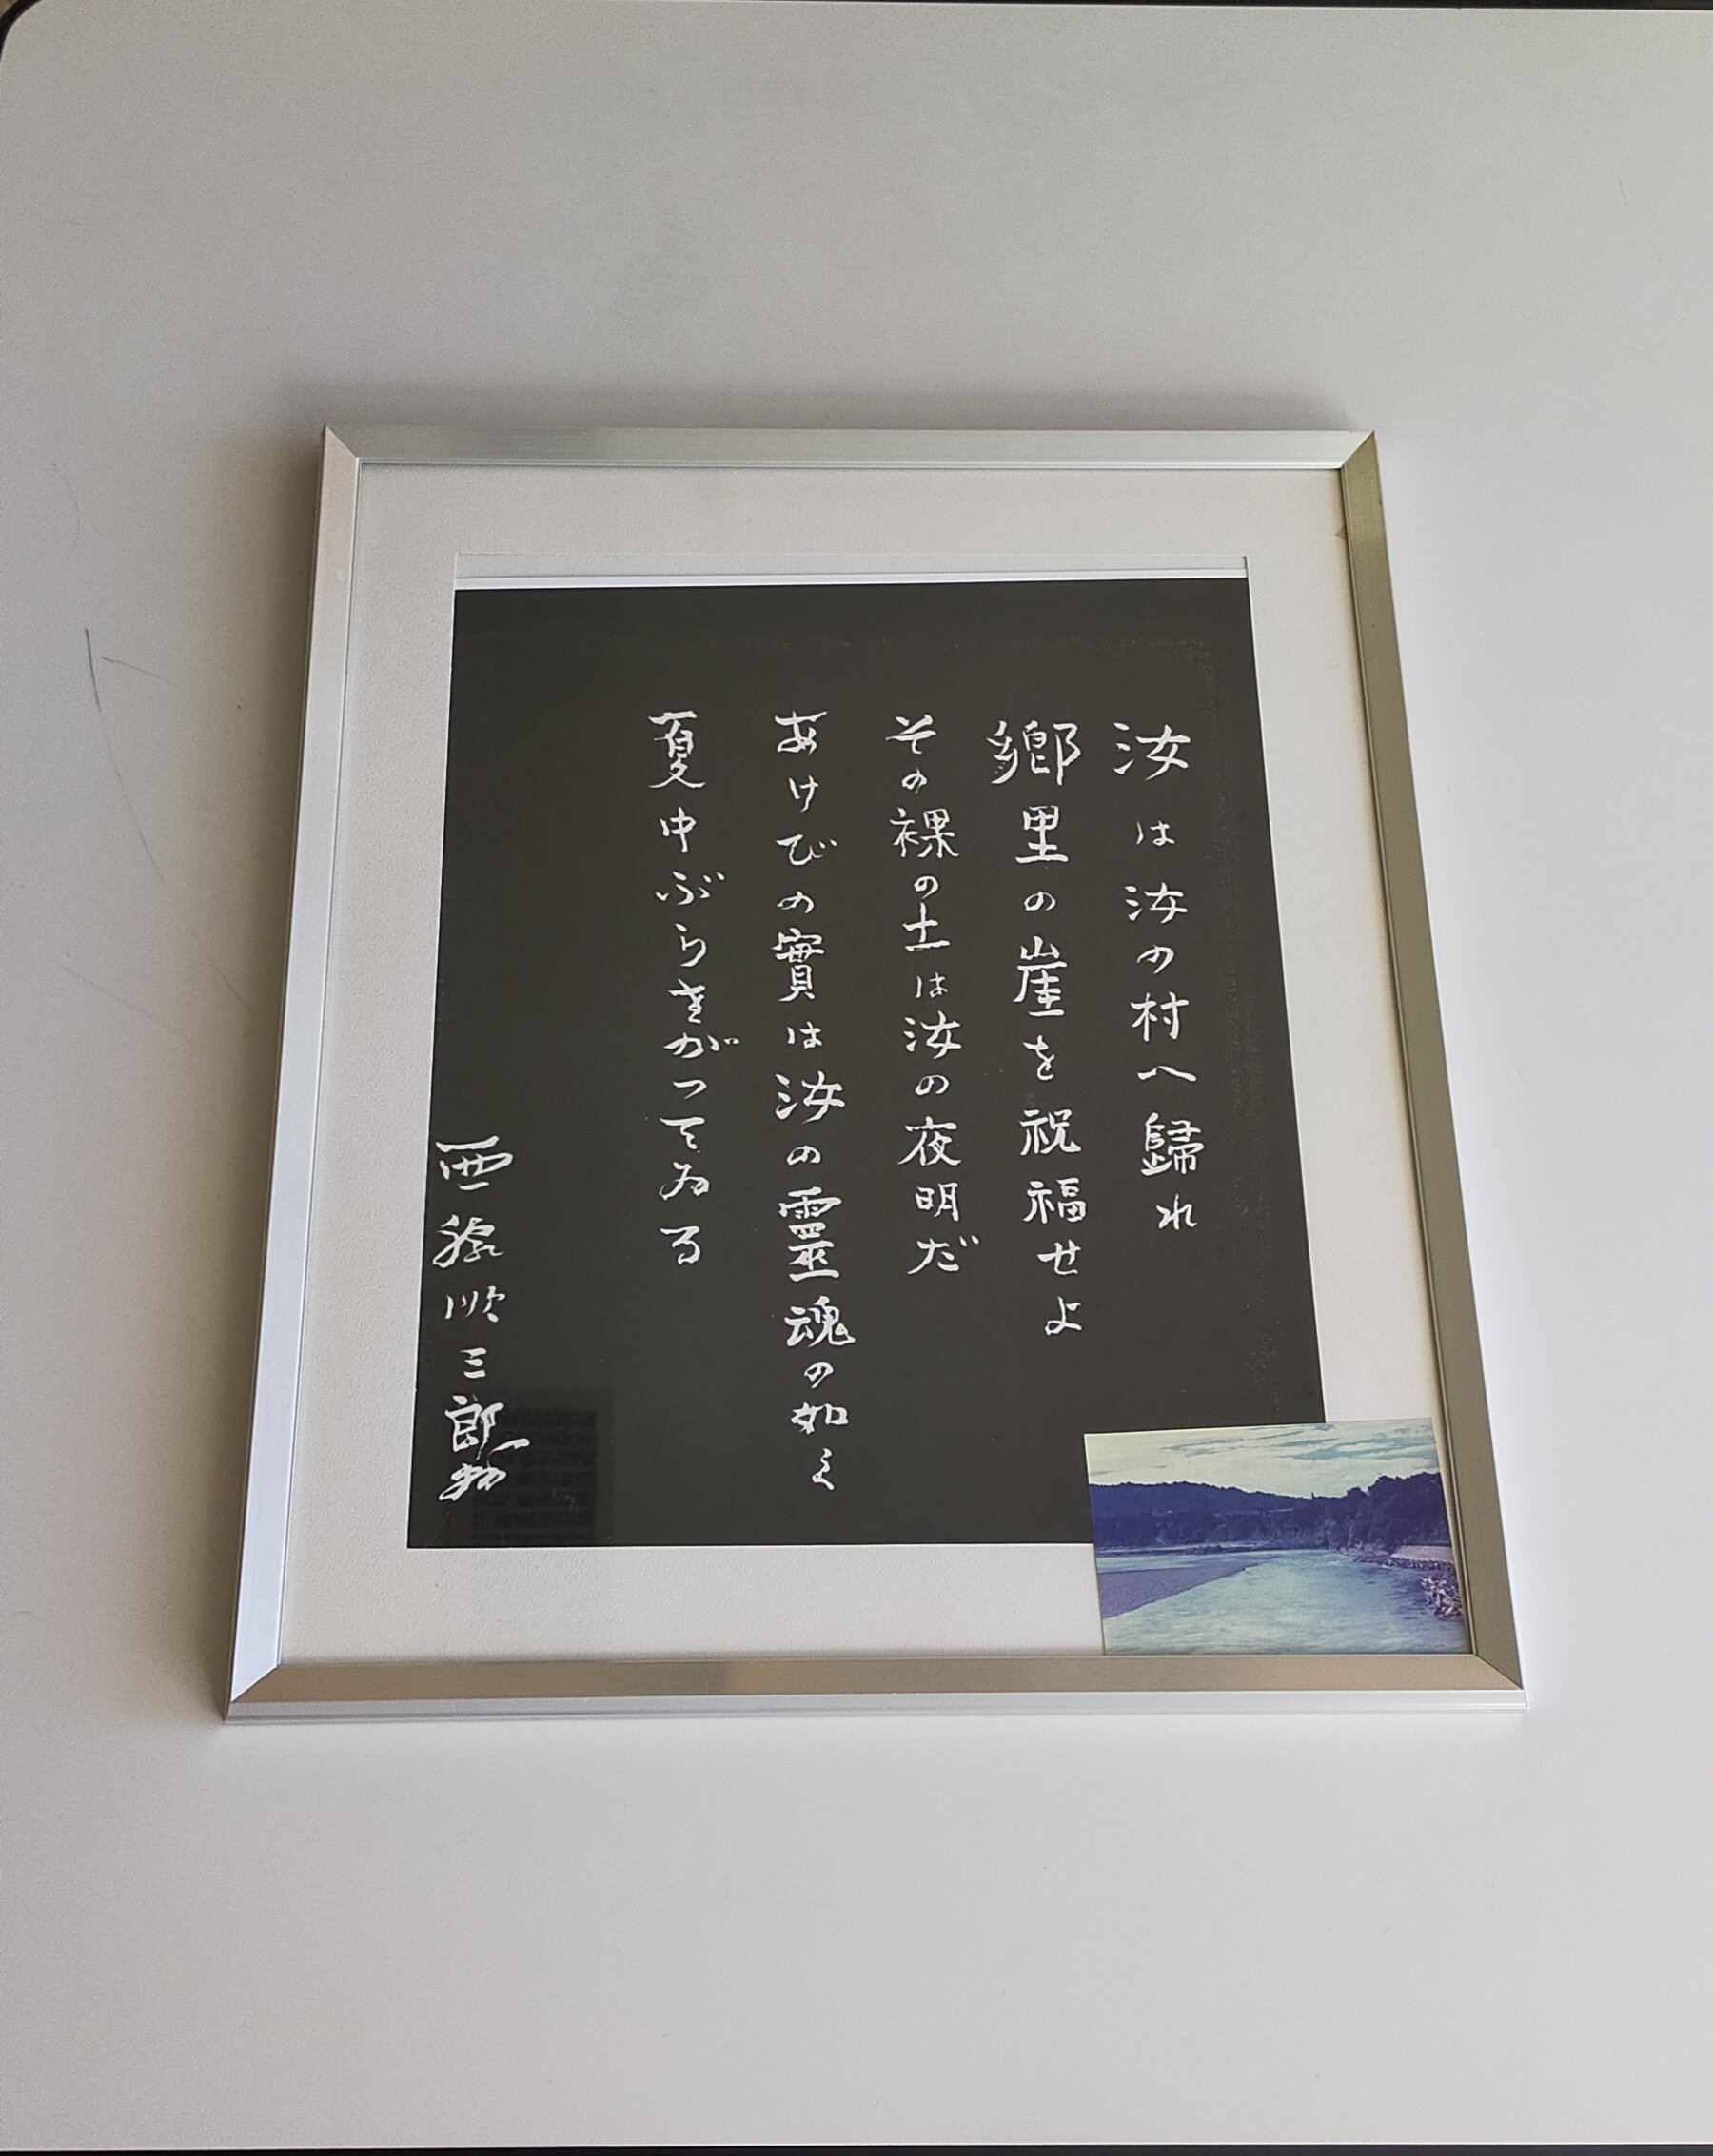 汝は汝の村へ歸れ
郷里の崖を祝福せよ
その裸の土は汝の夜明だ
あけびの實は汝の靈魂の如く
夏中ぶらさがつてゐる
西脇順三郎